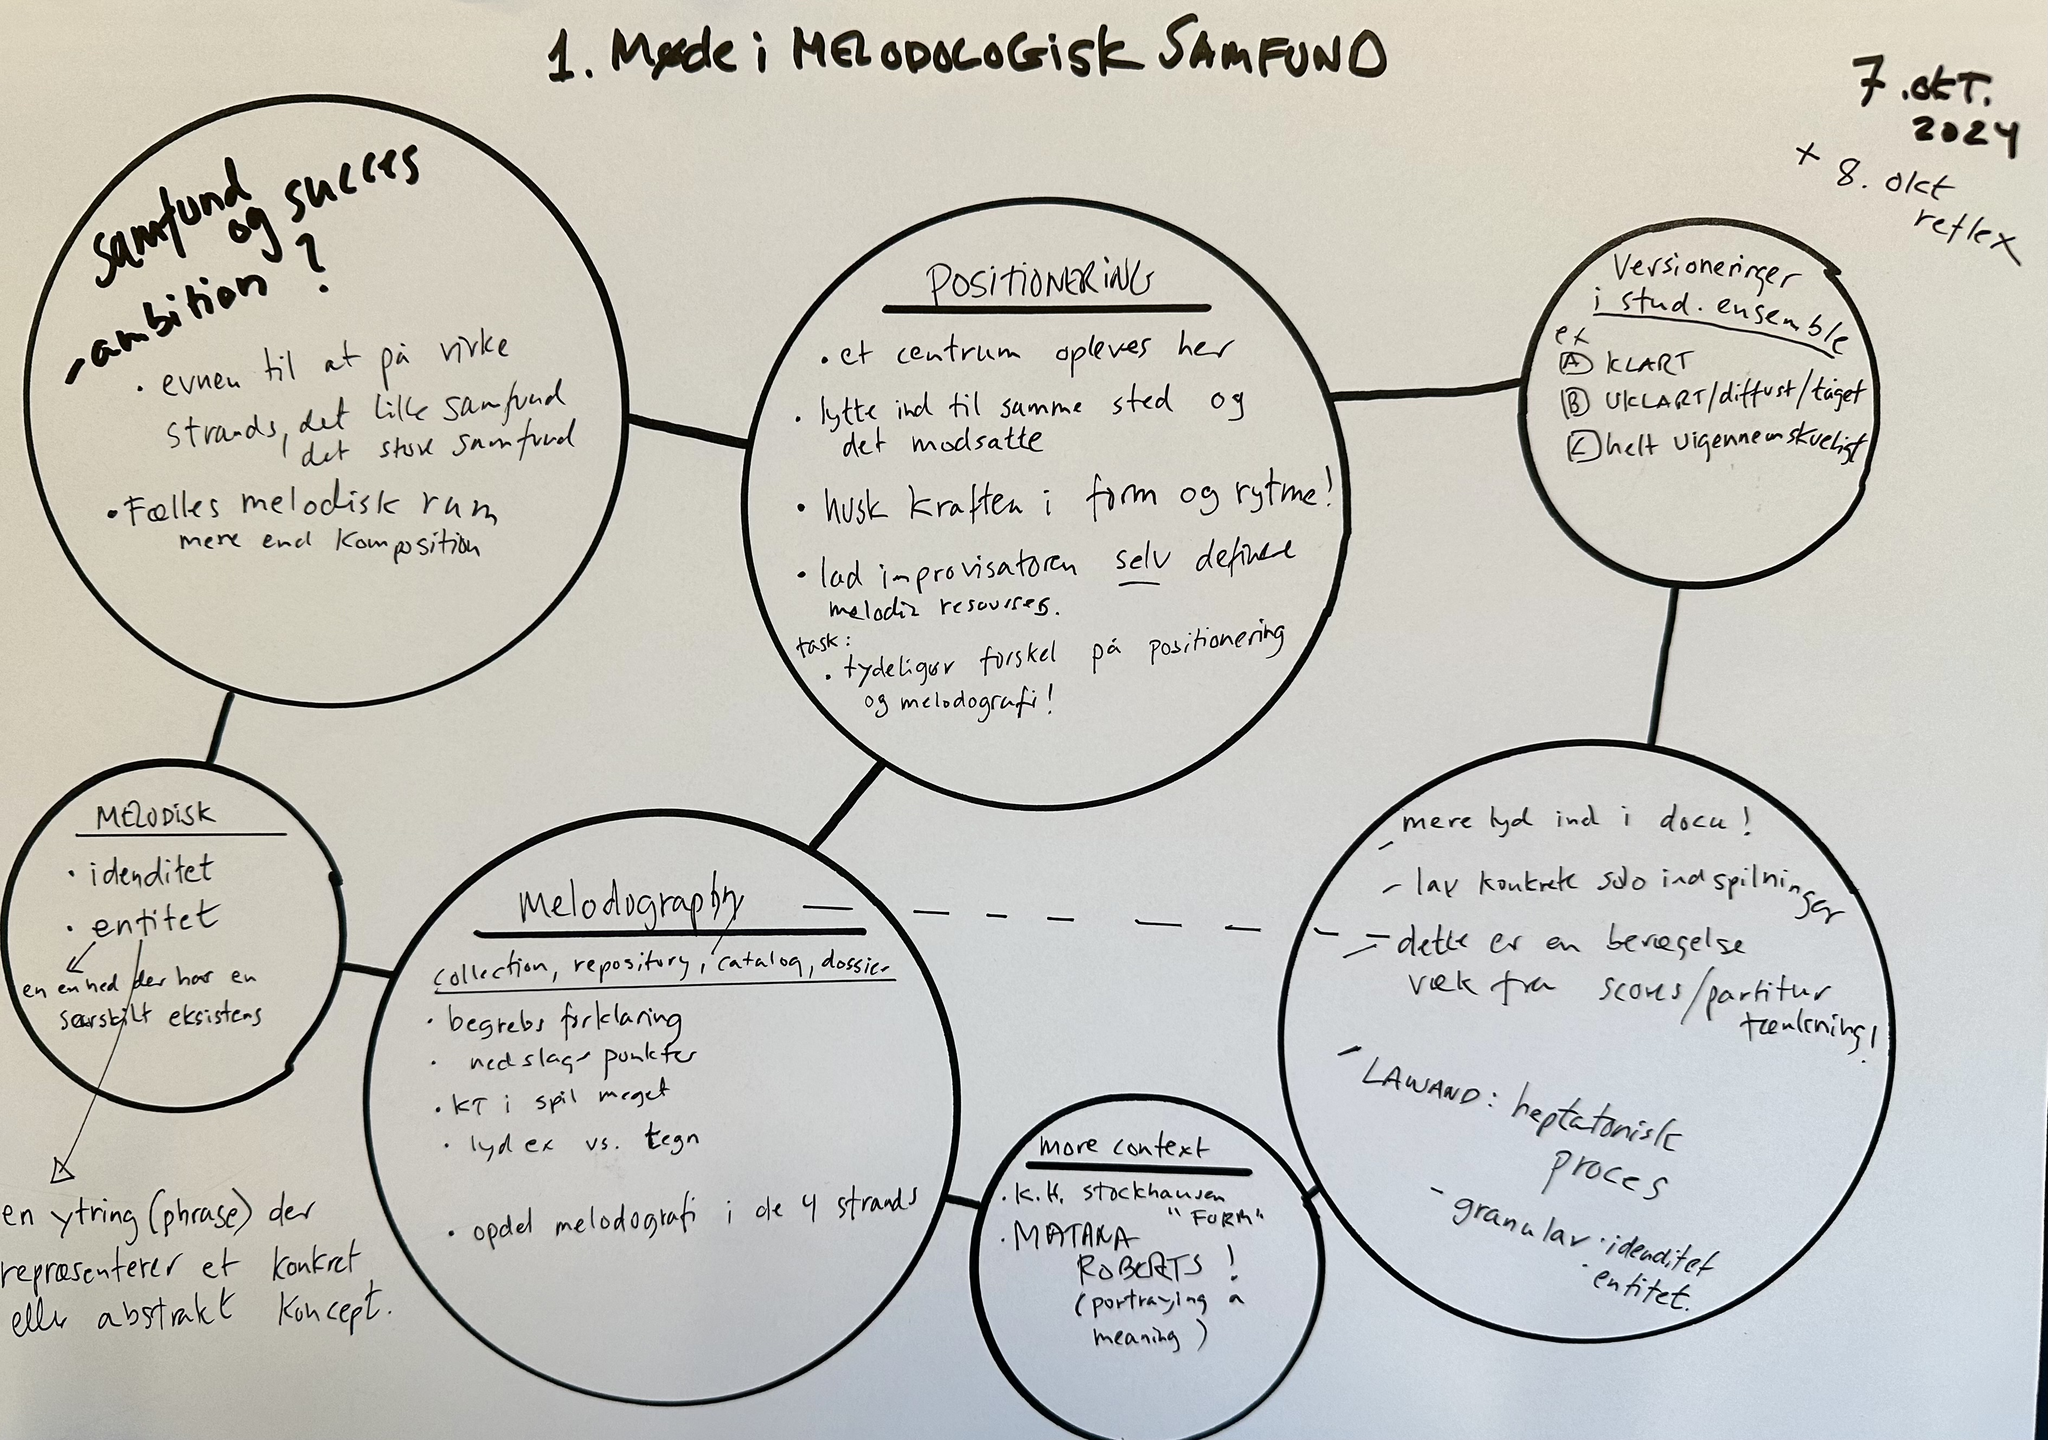 1. Møde i MELODOLOGISK SAMFUND
7. okt.
2024
+ 8. okt
reflex
samfund
og succes
- ambition?
• evnen til at på virke
strands, det lille samfund
det store samfund
• Fælles melodisk rum
mere end komposition
POSITIONERING
• et centrum opleves her
• lytte ind til samme sted og
det modsatte
• husk kraften i form og rytme!
• lad improvisatoren selv definere
melodiz resourses.
task:
• tydeligør forskel på positionering
og melodografi!
Versioneringer
i stud. ensemble
ex
A KLART
B UKLART/diffust/tåget
C helt uigennemskueligt
MELODISK
• idenditet
• entitet
en enhed der har en
særskilt eksistens
en ytring (phrase) der
repræsenterer et konkret
eller abstrakt koncept.
Melodography
collection, repository, catalog, dossier
• begrebs forklaring
• nedslags punkter
• KT i spil meget
• lyd ex vs. tegn
• opdel melodografi i de 4 strands
more context
• K.H. stockhausen
"FORM"
• MATANA
ROBERTS!
(portraying a
meaning)
- mere lyd ind i docu!
- lav konkrete solo indspilninger
- dette er en bevægelse
væk fra scores/partitur
tænkning!
- LAWAND: heptatonisk
proces
- granular • idenditet
• entitet.